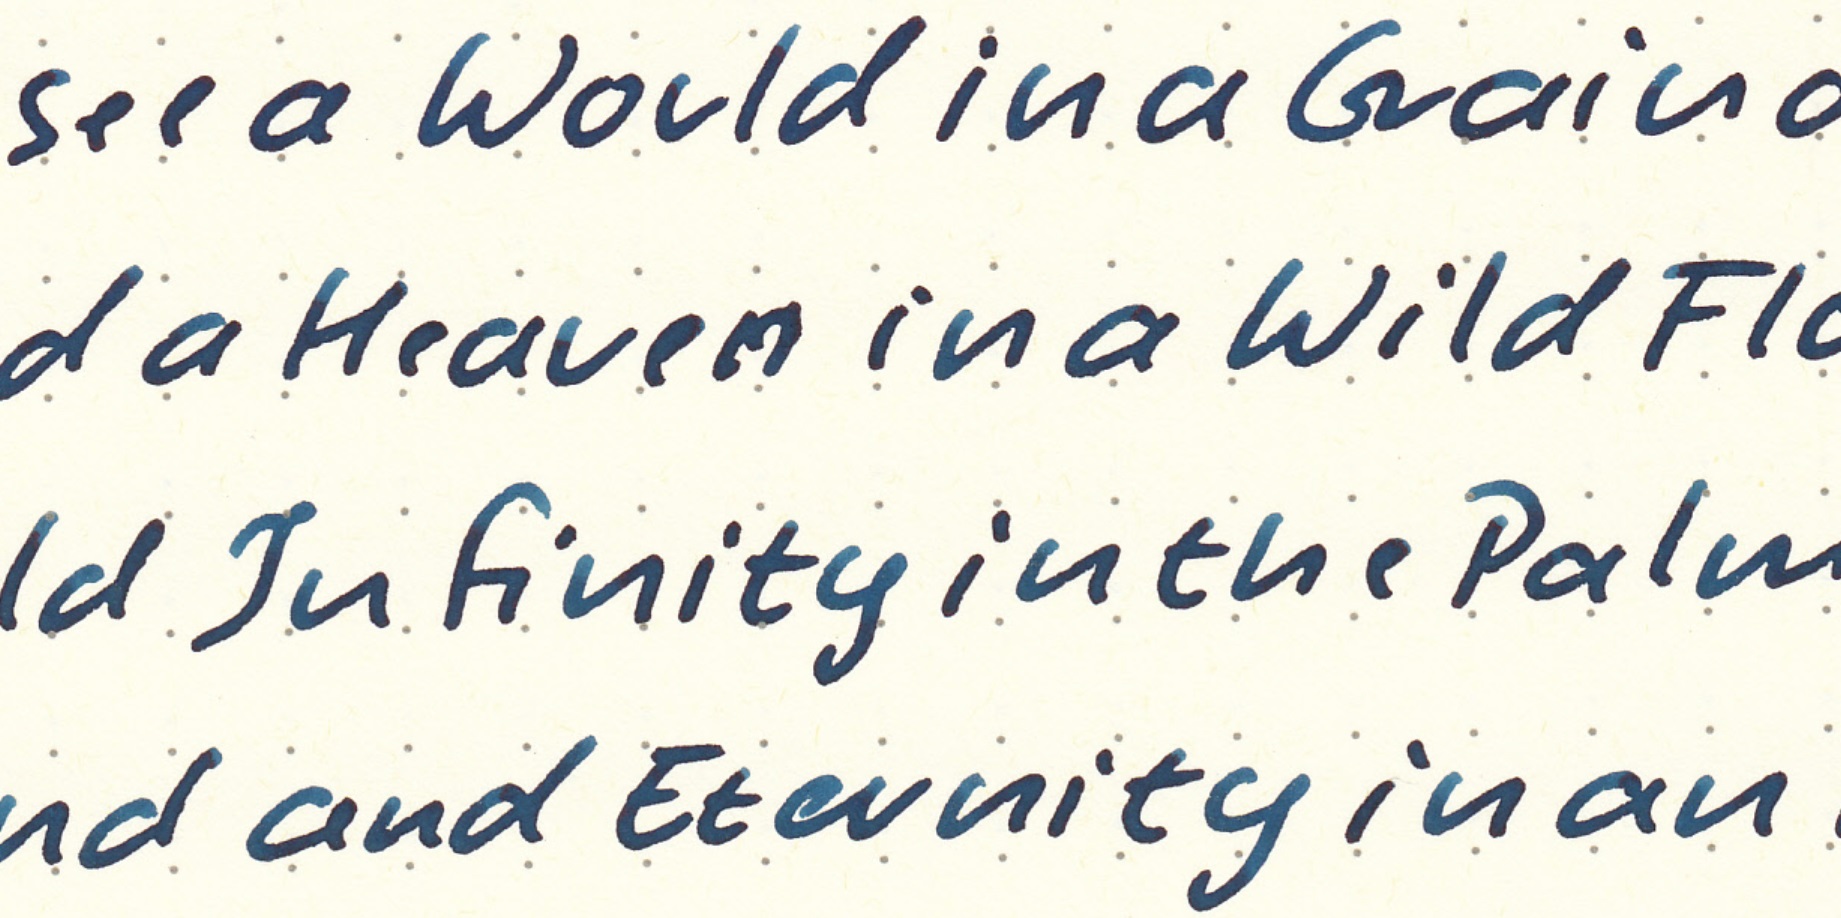 see a World in a Grain o
d a Heaven in a Wild Flo
ld Infinity in the Palm
nd and Eternity in an